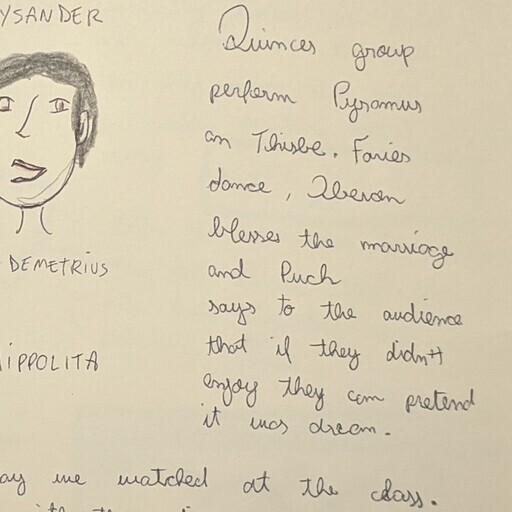 YSANDER
Quinces group
perform Pyramus
an Thisbe. Faries
dance, Oberon
blesses the marriage
DEMETRIUS
and Puck
says to the audience
that if they didn't
iPPOLITA
enjoy they can pretend
it was dream.
ay we watched at the class.